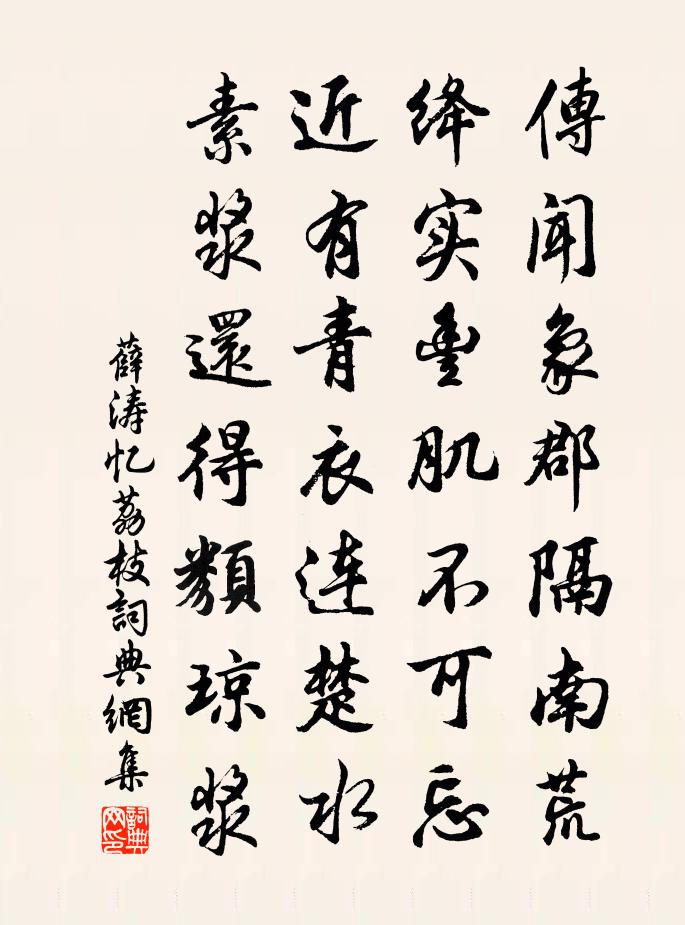 傳聞象郡隔南荒
绛实豐肌不可忘
近有青衣連楚水
素浆還得類琼浆
薛涛忆荔枝詞典網集
詞典网印